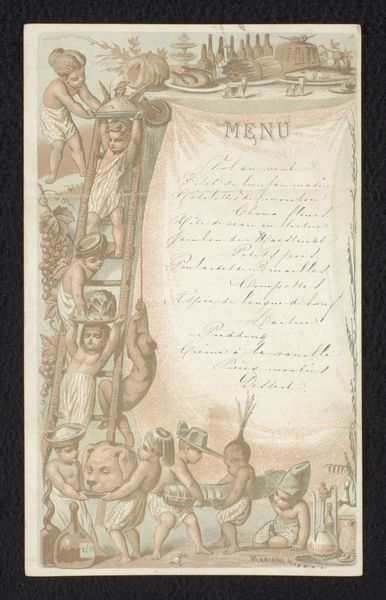 MENU
Vol au vent
Filet de boeuf au madère
Côtelettes de mouton
Choux fleurs
Tête de veau en tortue
Jambon de Maestricht
Petits pois
Poularde de Bruxelles
Compottes
Aspic de langue de boeuf
Laitue
Pudding
Crème à la vanille
Pièces montées
Dessert.
MARIANI